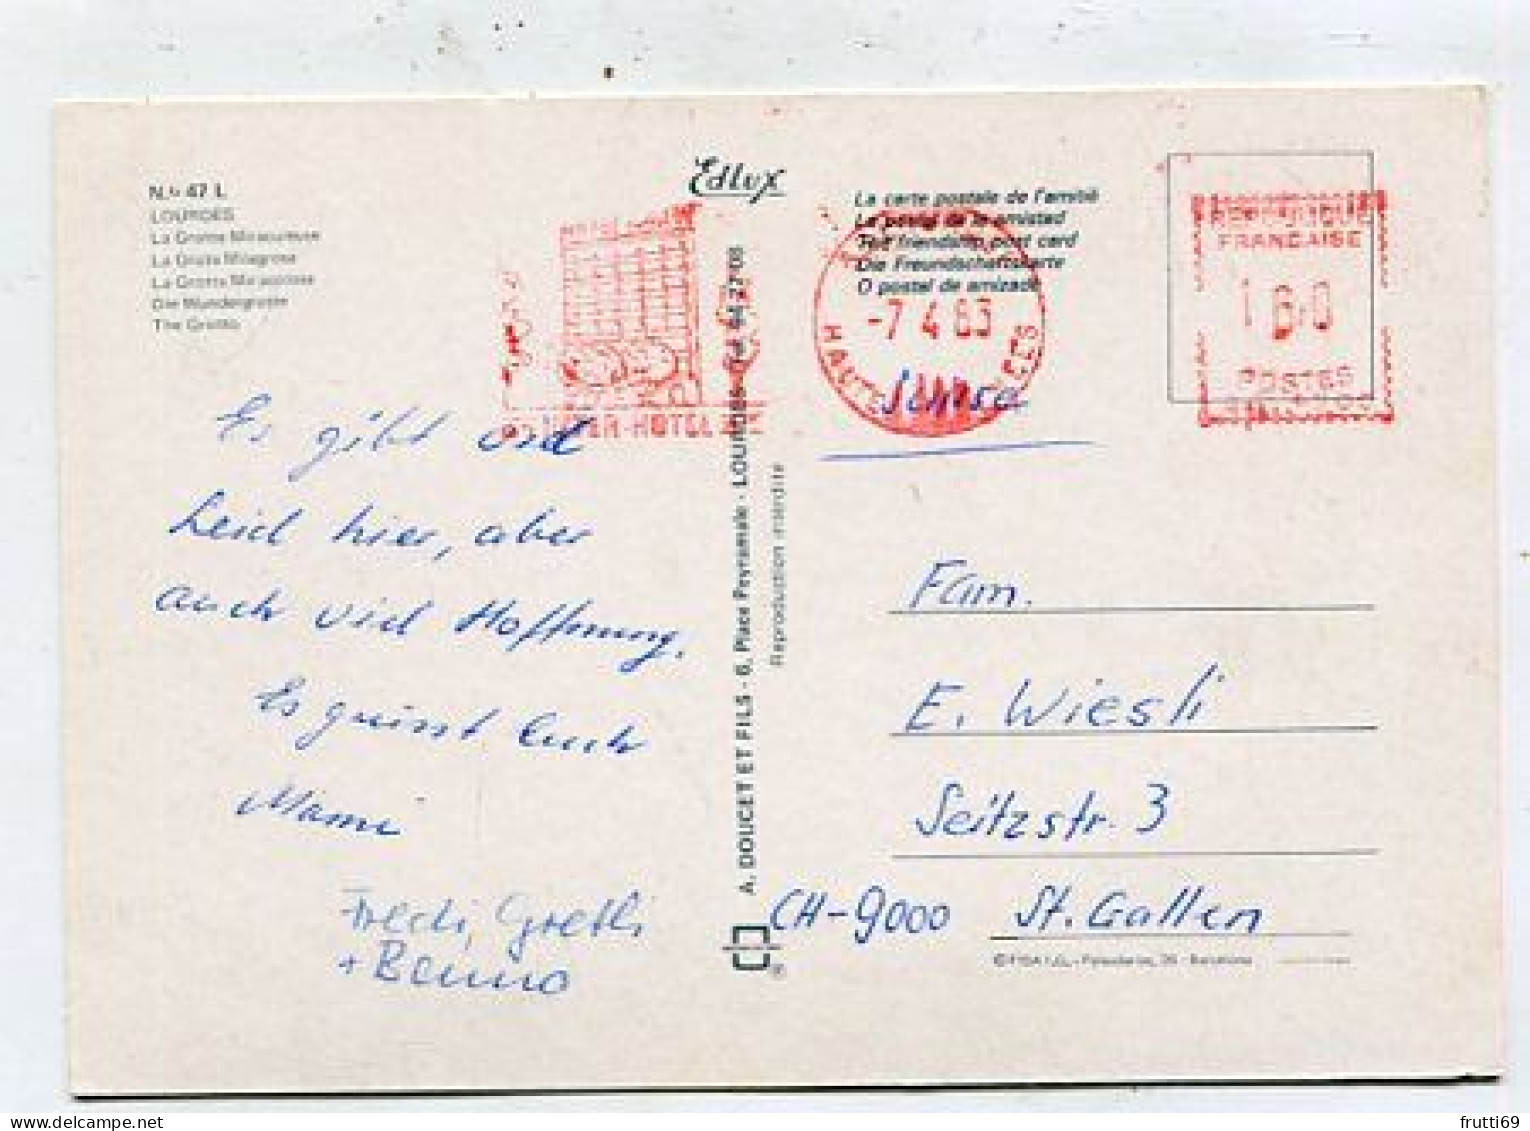 N.º 47 L
LOURDES
La Grotte Miraculeuse
La Gruta Milagrosa
La Grotta Miracolosa
Die Wundergrotte
The Grotto
Edlux
La carte postale de l'amitié
La postal de la amistad
The friendship post card
Die Freundschaftskarte
O postal de amizade
REPUBLIQUE
FRANCAISE
POSTES
-7 4 83
HAUTES
HOTEL
Es gibt viel
Leid hier, aber
auch viel Hoffnung.
Es grüsst Euch
Mami
Fredi, Gretli
+ Benno
A. DOUCET ET FILS - 6, Place Peyramale - LOURDES - Tél. 94 27 08
Reproduction interdite
Fam.
E. Wiesli
Seitzstr. 3
CH-9000 St. Gallen
© FISA I.G. - Palaudarias, 26 - Barcelona
frutti69